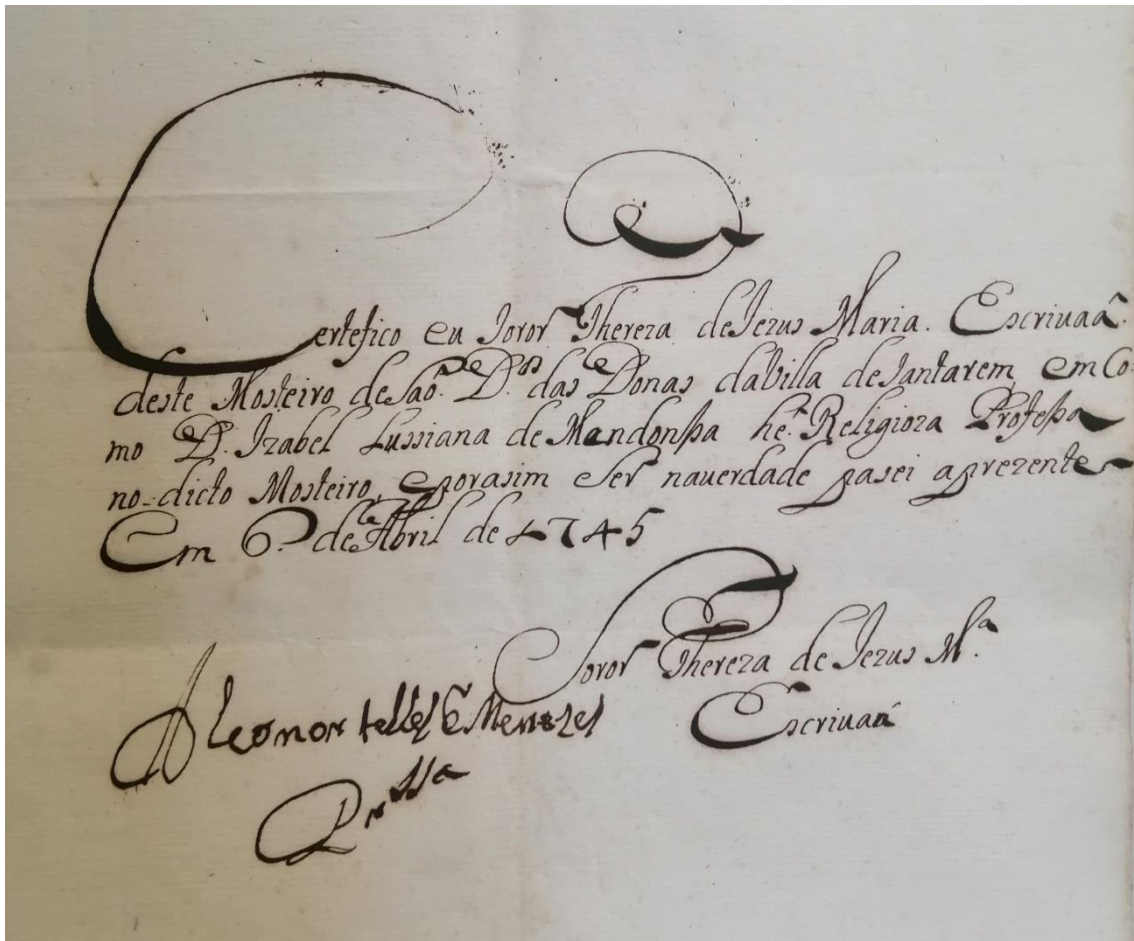 Certefico eu Soror Thereza de Jezus Maria. Escriuaã.
deste Mosteiro de Saõ. D.ºs das Donas da Villa de Santarem, em Co-
mo D. Izabel Lussiana de Mendonssa hé. Religioza Professa
no dicto Mosteiro, e por asim ser na uerdade pasei a prezente
Em 6. de Abril de 1745
Soror Thereza de Jezus M.ª
Escriuaã
Leonor telles e Menezes